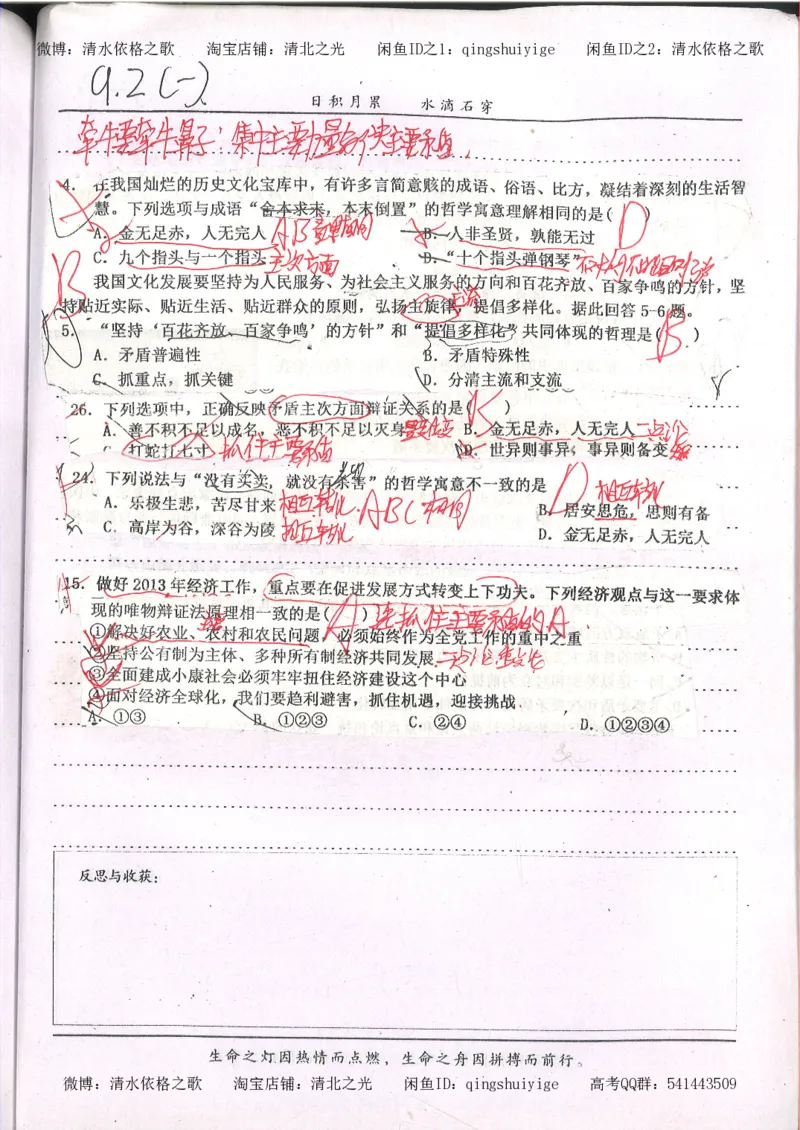 微博：清水依格之歌 淘宝店铺：清北之光 闲鱼ID之1：qingshuiyige 闲鱼ID之2：清水依格之歌
9.2(一)
日积月累 水滴石穿
牵牛要牵牛鼻子：集中主要力量解决主要矛盾.
4. 在我国灿烂的历史文化宝库中，有许多言简意赅的成语、俗语、比方，凝结着深刻的生活智
慧。下列选项与成语“舍本求末，本末倒置”的哲学寓意理解相同的是( D )
A. 金无足赤，人无完人 B. 人非圣贤，孰能无过
C. 九个指头与一个指头 主次方面 D. “十个指头弹钢琴”
B
我国文化发展要坚持为人民服务、为社会主义服务的方向和百花齐放、百家争鸣的方针，坚
持贴近实际、贴近生活、贴近群众的原则，弘扬主旋律，提倡多样化。据此回答 5-6 题。
5. “坚持‘百花齐放、百家争鸣’的方针”和“提倡多样化”共同体现的哲理是( B )
A. 矛盾普遍性 B. 矛盾特殊性
C. 抓重点，抓关键 D. 分清主流和支流
26. 下列选项中，正确反映矛盾主次方面辩证关系的是( )
A. 善不积不足以成名，恶不积不足以灭身 量变质变 B. 金无足赤，人无完人 两点论
C 打蛇打七寸 抓住主要矛盾 D. 世异则事异，事异则备变
24. 下列说法与“没有买卖，就没有杀害”的哲学寓意不一致的是 D 相互转化
A. 乐极生悲，苦尽甘来 相互转化. ABC相同 B. 居安思危，思则有备
C. 高岸为谷，深谷为陵 相互转化 D. 金无足赤，人无完人
15. 做好 2013 年经济工作，重点要在促进发展方式转变上下功夫。下列经济观点与这一要求体
现的唯物辩证法原理相一致的是( A ) 选抓住主要矛盾的A
①解决好农业、农村和农民问题，必须始终作为全党工作的重中之重
②坚持公有制为主体、多种所有制经济共同发展 两点论重点论
③全面建成小康社会必须牢牢扭住经济建设这个中心
④面对经济全球化，我们要趋利避害，抓住机遇，迎接挑战
A. ①③ B. ①②③ C. ②④ D. ①②③④
反思与收获：
生命之灯因热情而点燃，生命之舟因拼搏而前行。
微博：清水依格之歌 淘宝店铺：清北之光 闲鱼ID：qingshuiyige 高考QQ群：541443509